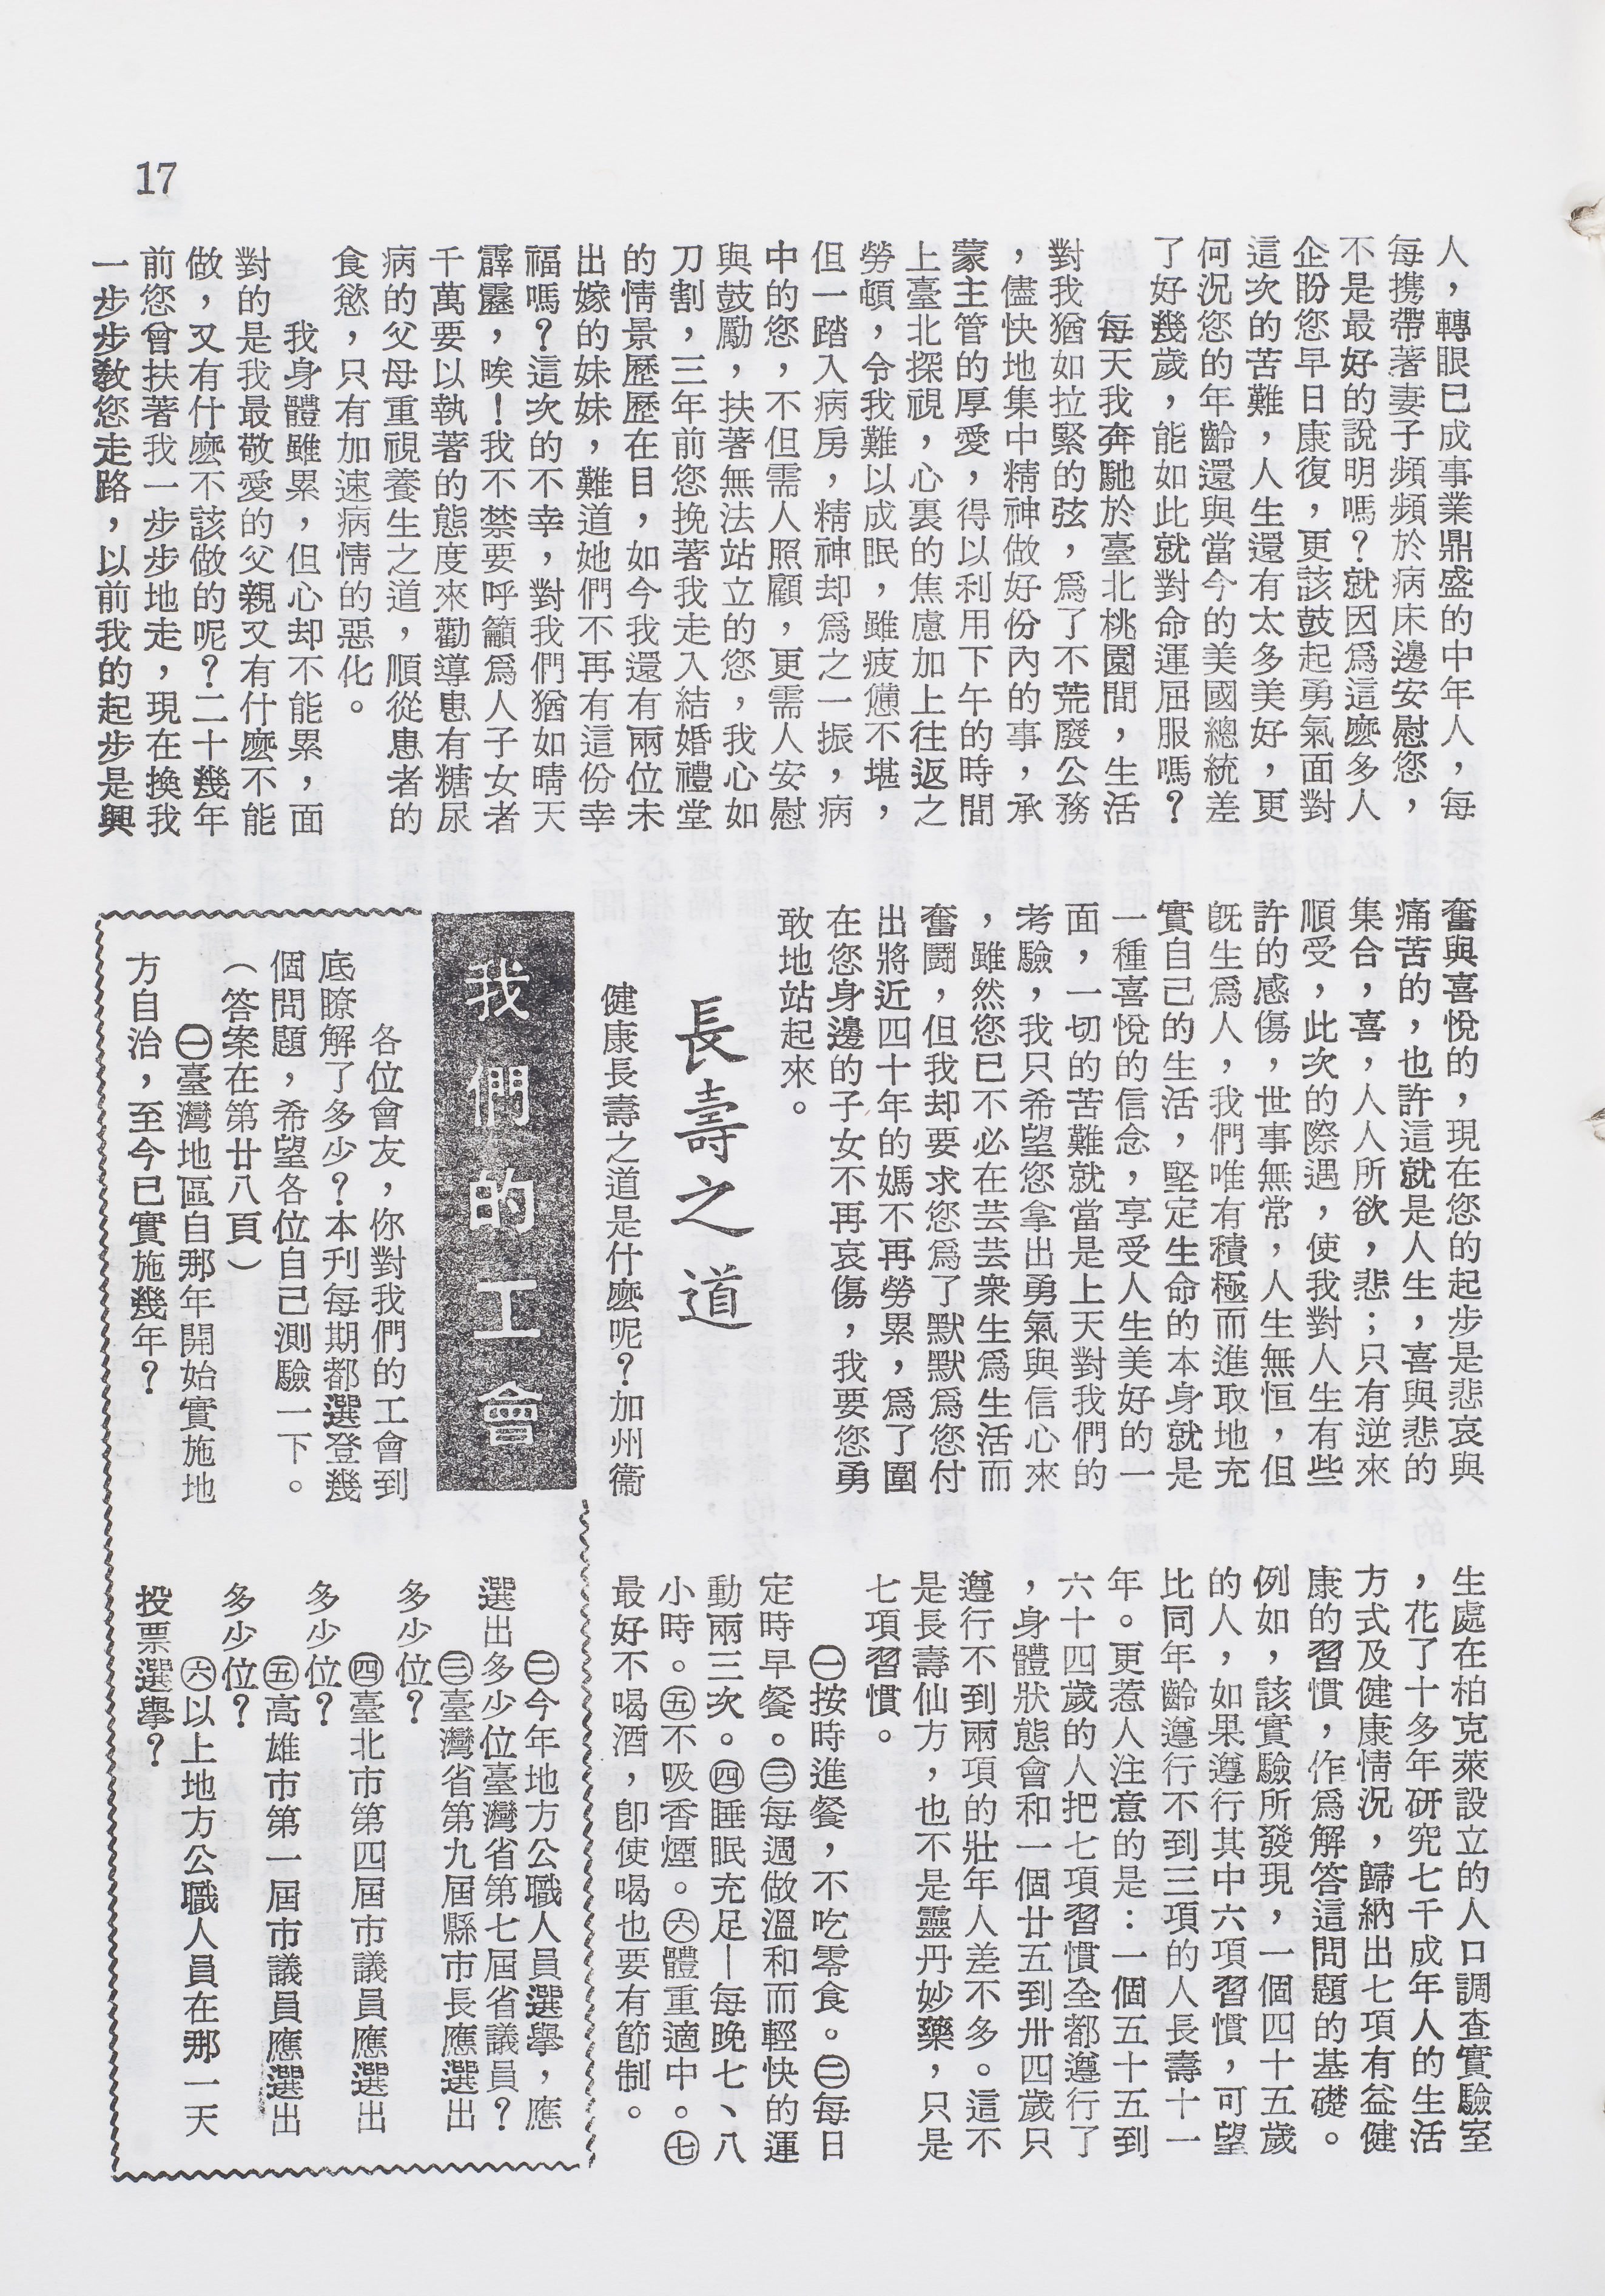 17
人，轉眼已成事業鼎盛的中年人，每
每携帶著妻子頻頻於病床邊安慰您，
不是最好的說明嗎？就因爲這麼多人
企盼您早日康復，更該鼓起勇氣面對
這次的苦難，人生還有太多美好，更
何況您的年齡還與當今的美國總統差
了好幾歲，能如此就對命運屈服嗎？
每天我奔馳於臺北桃園間，生活
對我猶如拉緊的弦，爲了不荒廢公務
，儘快地集中精神做好份內的事，承
蒙主管的厚愛，得以利用下午的時間
上臺北探視，心裏的焦慮加上往返之
勞頓，令我難以成眠，雖疲憊不堪，
但一踏入病房，精神却爲之一振，病
中的您，不但需人照顧，更需人安慰
與鼓勵，扶著無法站立的您，我心如
刀割，三年前您挽著我走入結婚禮堂
的情景歷歷在目，如今我還有兩位未
出嫁的妹妹，難道她們不再有這份幸
福嗎？這次的不幸，對我們猶如晴天
霹靂，唉！我不禁要呼籲爲人子女者
千萬要以執著的態度來勸導患有糖尿
病的父母重視養生之道，順從患者的
食慾，只有加速病情的惡化。
我身體雖累，但心却不能累，面
對的是我最敬愛的父親又有什麼不能
做，又有什麼不該做的呢？二十幾年
前您曾扶著我一步步地走，現在換我
一步步教您走路，以前我的起步是興
奮與喜悅的，現在您的起步是悲哀與
痛苦的，也許這就是人生，喜與悲的
集合，喜，人人所欲，悲；只有逆來
順受，此次的際遇，使我對人生有些
許的感傷，世事無常，人生無恒，但
旣生爲人，我們唯有積極而進取地充
實自己的生活，堅定生命的本身就是
一種喜悅的信念，享受人生美好的一
面，一切的苦難就當是上天對我們的
考驗，我只希望您拿出勇氣與信心來
，雖然您已不必在芸芸衆生爲生活而
奮鬪，但我却要求您爲了默默爲您付
出將近四十年的媽不再勞累，爲了圍
在您身邊的子女不再哀傷，我要您勇
敢地站起來。
長壽之道
健康長壽之道是什麼呢？加州衞
生處在柏克萊設立的人口調查實驗室
，花了十多年研究七千成年人的生活
方式及健康情況，歸納出七項有益健
康的習慣，作爲解答這問題的基礎。
例如，該實驗所發現，一個四十五歲
的人，如果遵行其中六項習慣，可望
比同年齡遵行不到三項的人長壽十一
年。更惹人注意的是：一個五十五到
六十四歲的人把七項習慣全都遵行了
，身體狀態會和一個廿五到卅四歲只
遵行不到兩項的壯年人差不多。這不
是長壽仙方，也不是靈丹妙藥，只是
七項習慣。
㊀按時進餐，不吃零食。㊁每日
定時早餐。㊂每週做溫和而輕快的運
動兩三次。㊃睡眠充足—每晚七、八
小時。㊄不吸香煙。㊅體重適中。㊆
最好不喝酒，卽使喝也要有節制。
我們的工會
各位會友，你對我們的工會到
底瞭解了多少？本刊每期都選登幾
個問題，希望各位自己測驗一下。
（答案在第廿八頁）
㊀臺灣地區自那年開始實施地
方自治，至今已實施幾年？
㊁今年地方公職人員選舉，應
選出多少位臺灣省第七屆省議員？
㊂臺灣省第九屆縣市長應選出
多少位？
㊃臺北市第四屆市議員應選出
多少位？
㊄高雄市第一屆市議員應選出
多少位？
㊅以上地方公職人員在那一天
投票選舉？